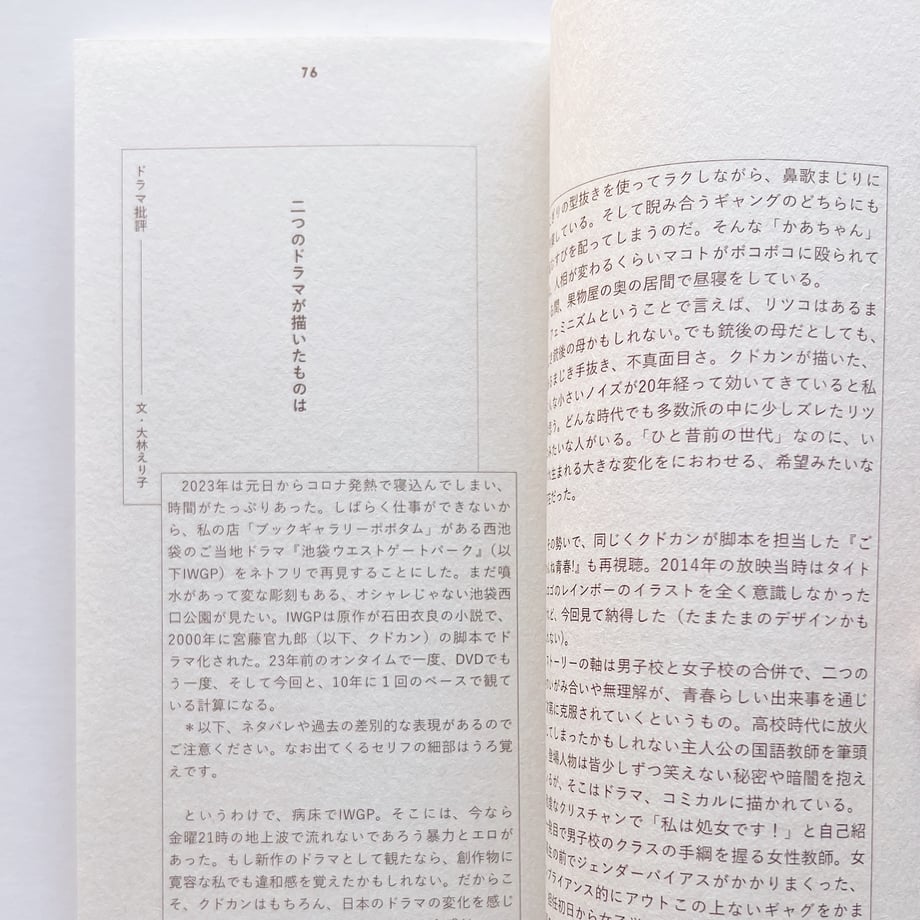 76
ドラマ批評
文・大林えり子
二つのドラマが描いたものは
2023年は元日からコロナ発熱で寝込んでしまい、
時間がたっぷりあった。しばらく仕事ができないか
ら、私の店「ブックギャラリーポポタム」がある西池
袋のご当地ドラマ『池袋ウエストゲートパーク』（以
下IWGP）をネトフリで再見することにした。まだ噴
水があって変な彫刻もある、オシャレじゃない池袋西
口公園が見たい。IWGPは原作が石田衣良の小説で、
2000年に宮藤官九郎（以下、クドカン）の脚本でド
ラマ化された。23年前のオンタイムで一度、DVDでも
う一度、そして今回と、10年に１回のペースで観て
いる計算になる。
＊以下、ネタバレや過去の差別的な表現があるので
ご注意ください。なお出てくるセリフの細部はうろ覚
えです。
というわけで、病床でIWGP。そこには、今なら
金曜21時の地上波で流れないであろう暴力とエロが
あった。もし新作のドラマとして観たなら、創作物に
寛容な私でも違和感を覚えたかもしれない。だからこ
そ、クドカンはもちろん、日本のドラマの変化を感じ
の型抜きを使ってラクしながら、鼻歌まじりに
している。そして睨み合うギャングのどちらにも
すびを配ってしまうのだ。そんな「かあちゃん」
人相が変わるくらいマコトがボコボコに殴られて
間、果物屋の奥の居間で昼寝をしている。
フェミニズムということで言えば、リツコはあるま
銃後の母かもしれない。でも銃後の母だとしても、
まじき手抜き、不真面目さ。クドカンが描いた、
な小さいノイズが20年経って効いてきていると私
う。どんな時代でも多数派の中に少しズレたリツ
みたいな人がいる。「ひと昔前の世代」なのに、い
生まれる大きな変化をにおわせる、希望みたいな
だった。
の勢いで、同じくクドカンが脚本を担当した『ご
ね青春!』も再視聴。2014年の放映当時はタイト
ゴのレインボーのイラストを全く意識しなかった
ど、今回見て納得した（たまたまのデザインかも
ない）。
ストーリーの軸は男子校と女子校の合併で、二つの
いがみ合いや無理解が、青春らしい出来事を通じ
に克服されていくというもの。高校時代に放火
してしまったかもしれない主人公の国語教師を筆頭
登場人物は皆少しずつ笑えない秘密や暗闇を抱え
るが、そこはドラマ、コミカルに描かれている。
なクリスチャンで「私は処女です！」と自己紹
発目で男子校のクラスの手綱を握る女性教師。女
の前でジェンダーバイアスがかかりまくった、
プライアンス的にアウトこの上ないギャグをかま